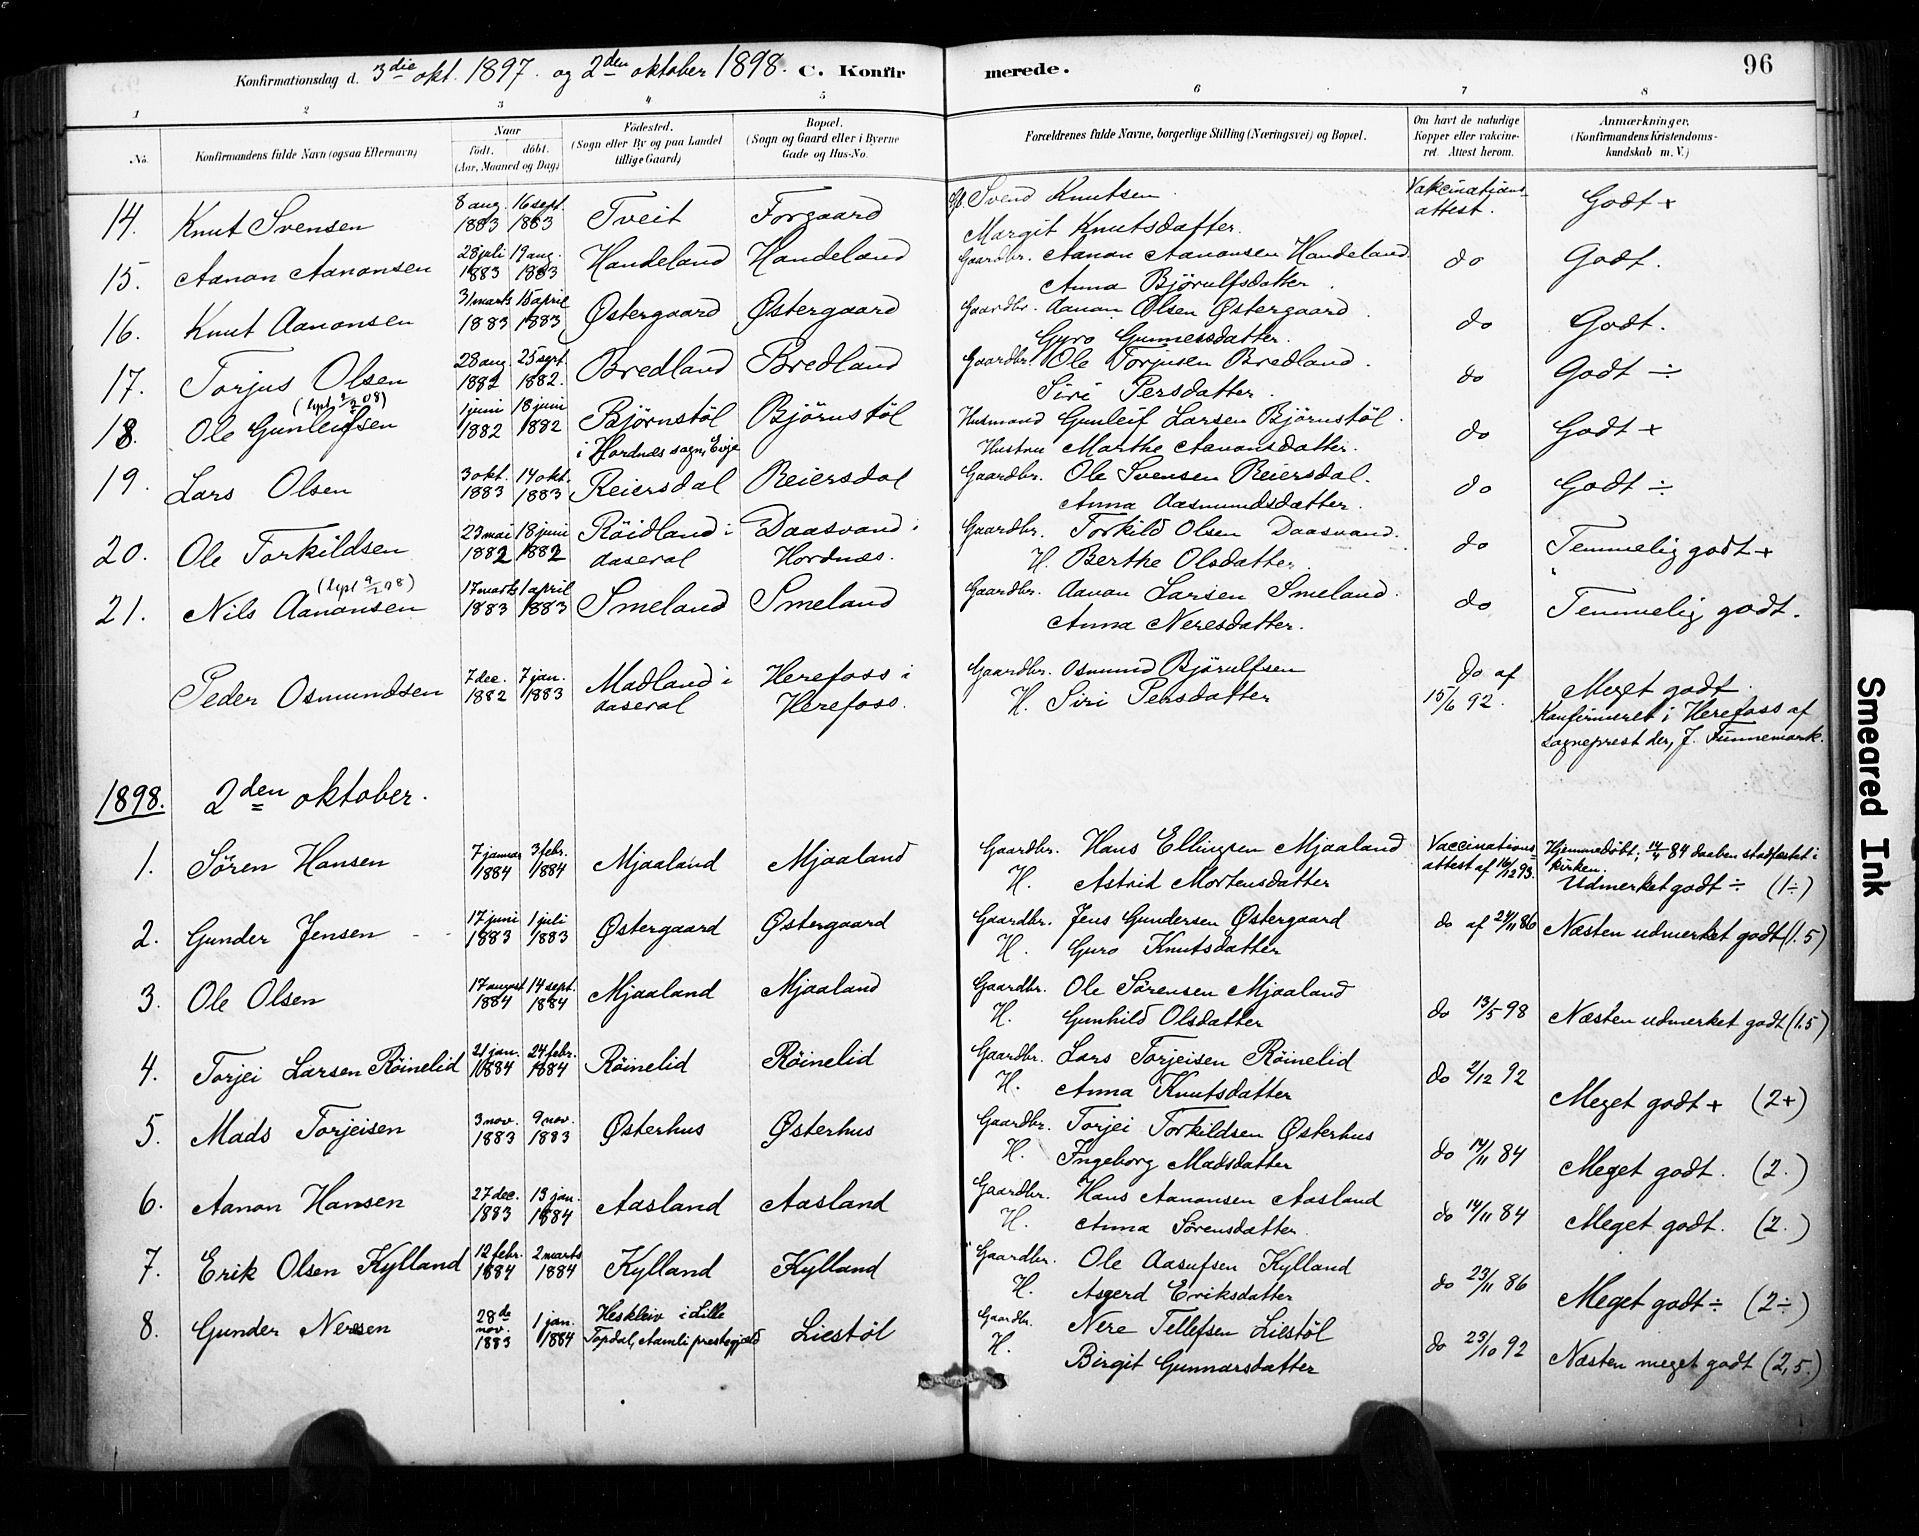 Konfirmationsdag d. 3die okt. 1897. og 2den oktober 1898. C. Konfirmerede. 96
1 2 3 4 5 6 7 8
No. Konfirmandens fulde Navn (ogsaa Efternavn) Naar født. døbt. (Aar, Maaned og Dag) Fødested. (Sogn eller By og paa Landet tillige Gaard) Bopæl. (Sogn og Gaard eller i Byerne Gade og Hus-No. Forældrenes fulde Navne, borgerlige Stilling (Næringsvei) og Bopæl. Om havt de naturlige Kopper eller vakcineret. Attest herom. Anmærkninger. (Konfirmandens Kristendomskundskab m. V.)
14. Knut Svensen 8 aug. 1883 16 sept. 1883 Tveit Forgaard Svend Knutsen Vakcinationsattest. Godt +
Margit Knutsdatter.
15. Aanon Aanonsen 28 juli 1883 19 aug. 1883 Handeland Handeland Gaardbr. Aanon Aanonsen Handeland do Godt.
Anna Bjørulfsdatter.
16. Knut Aanonsen 31 marts 1883 15 april 1883 Østergaard Østergaard Gaardbr. Aanon Olsen Østergaard. do Godt.
Gyro Gunnesdatter.
17. Torjus Olsen 28 aug. 1882 25 sept. 1882. Bredland Bredland Gaardbr. Ole Torjusen Bredland. do Godt ÷
Siri Persdatter.
18. Ole Gunleifsen 1 juni 1882 18 juni 1882 Bjørnstøl i Hordnæs sogn, Evje Bjørnstøl Husmand Gunleif Larsen Bjørnstøl. do Godt +
Hustru Marthe Aanonsdatter.
19. Lars Olsen 3 okt. 1883 14 okt. 1883 Reiersdal Reiersdal Gaardbr. Ole Svensen Reiersdal. do Godt ÷
Anna Aasmundsdatter.
20. Ole Torkildsen 29 mai 1882 18 juni 1882 Røidland i Aaseral Daasvand i Hordnæs. Gaardbr. Torkild Olsen Daasvand. do Temmelig godt +
H. Berthe Olsdatter.
21. Nils Aanonsen 17 marts 1883 1 april 1883 Smeland Smeland Gaardbr. Aanon Larsen Smeland. do Temmelig godt.
Anna Neresdatter.
Peder Osmundsen 7 dec. 1882 7 jan. 1883 Madland i Aaseral Herefoss i Herefoss. Gaardbr. Osmund Bjørulfsen do af 15/6 92. Meget godt.
H. Siri Persdatter
Konfirmeret i Herefoss af
sogneprest der, J. Funnemark.
1898. 2den oktober.
1. Sören Hansen 7 januar 1884 3 febr. 1884 Mjaaland Mjaaland Gaardbr. Hans Ellingsen Mjaaland Vaccinationsattest af 16/12 93. Hjemmedøbt; 14/4 84 daaben stadfæstet i kirken.
H. Astrid Mortensdatter Udmerket godt ÷ (1÷)
2. Gunder Jensen 17 juni 1883 1 juli 1883 Østergaard Østergaard Gaardbr. Jens Gundersen Østergaard do af 24/11 86 Næsten udmerket godt (1.5)
H. Guro Knutsdatter
3. Ole Olsen 17 august 1884 14 sept. 1884 Mjaaland Mjaaland Gaardbr. Ole Sørensen Mjaaland do 13/5 98 Næsten udmerket godt (1.5)
H. Gunhild Olsdatter
4. Torjei Larsen Röinelid 21 jan. 1884 24 febr. 1884 Röinelid Röinelid Gaardbr. Lars Torjeisen Röinelid do 2/12 92 Meget godt + (2+)
H. Anna Knutsdatter
5. Mads Torjeisen 3 nov. 1883 9 nov. 1883 Østerhus Østerhus Gaardbr. Torjei Torkildsen Østerhus do 14/11 84 Meget godt. (2.)
H. Ingeborg Madsdatter
6. Aanon Hansen 27 dec. 1883 13 jan. 1884 Aasland Aasland Gaardbr. Hans Aanonsen Aasland do 14/11 84 Meget godt. (2.)
H. Anna Sørensdatter.
7. Erik Olsen Kylland 12 febr. 1884 2 marts 1884 Kylland Kylland Gaardbr. Ole Aasufsen Kylland do 23/11 86 Meget godt ÷ (2÷)
H. Asgerd Eriksdatter
8. Gunder Neresen 28de nov. 1883 1 jan. 1884 Heskleiv i Lille Topdal, Aamli prestegjæld Liestøl Gaardbr. Nere Tellefsen Liestöl do 23/10 92 Næsten meget godt (2,5.)
H. Birgit Gunnarsdatter
Smeared Ink